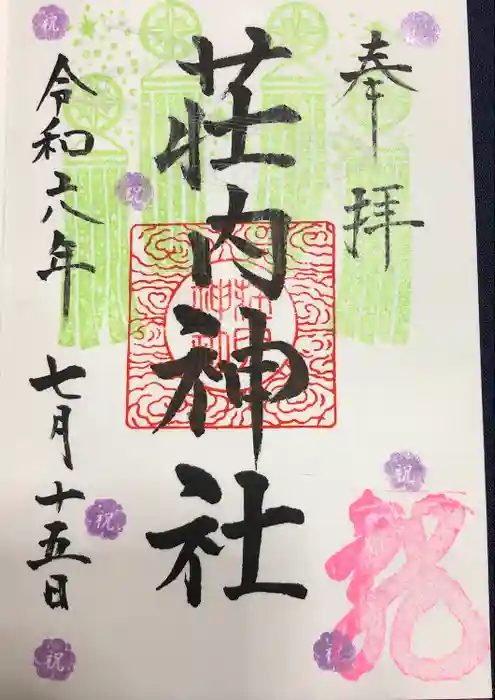 奉拝
荘内神社
令和六年
七月十五日
祝
祝
祝
祝
祝
祝
祝
祝